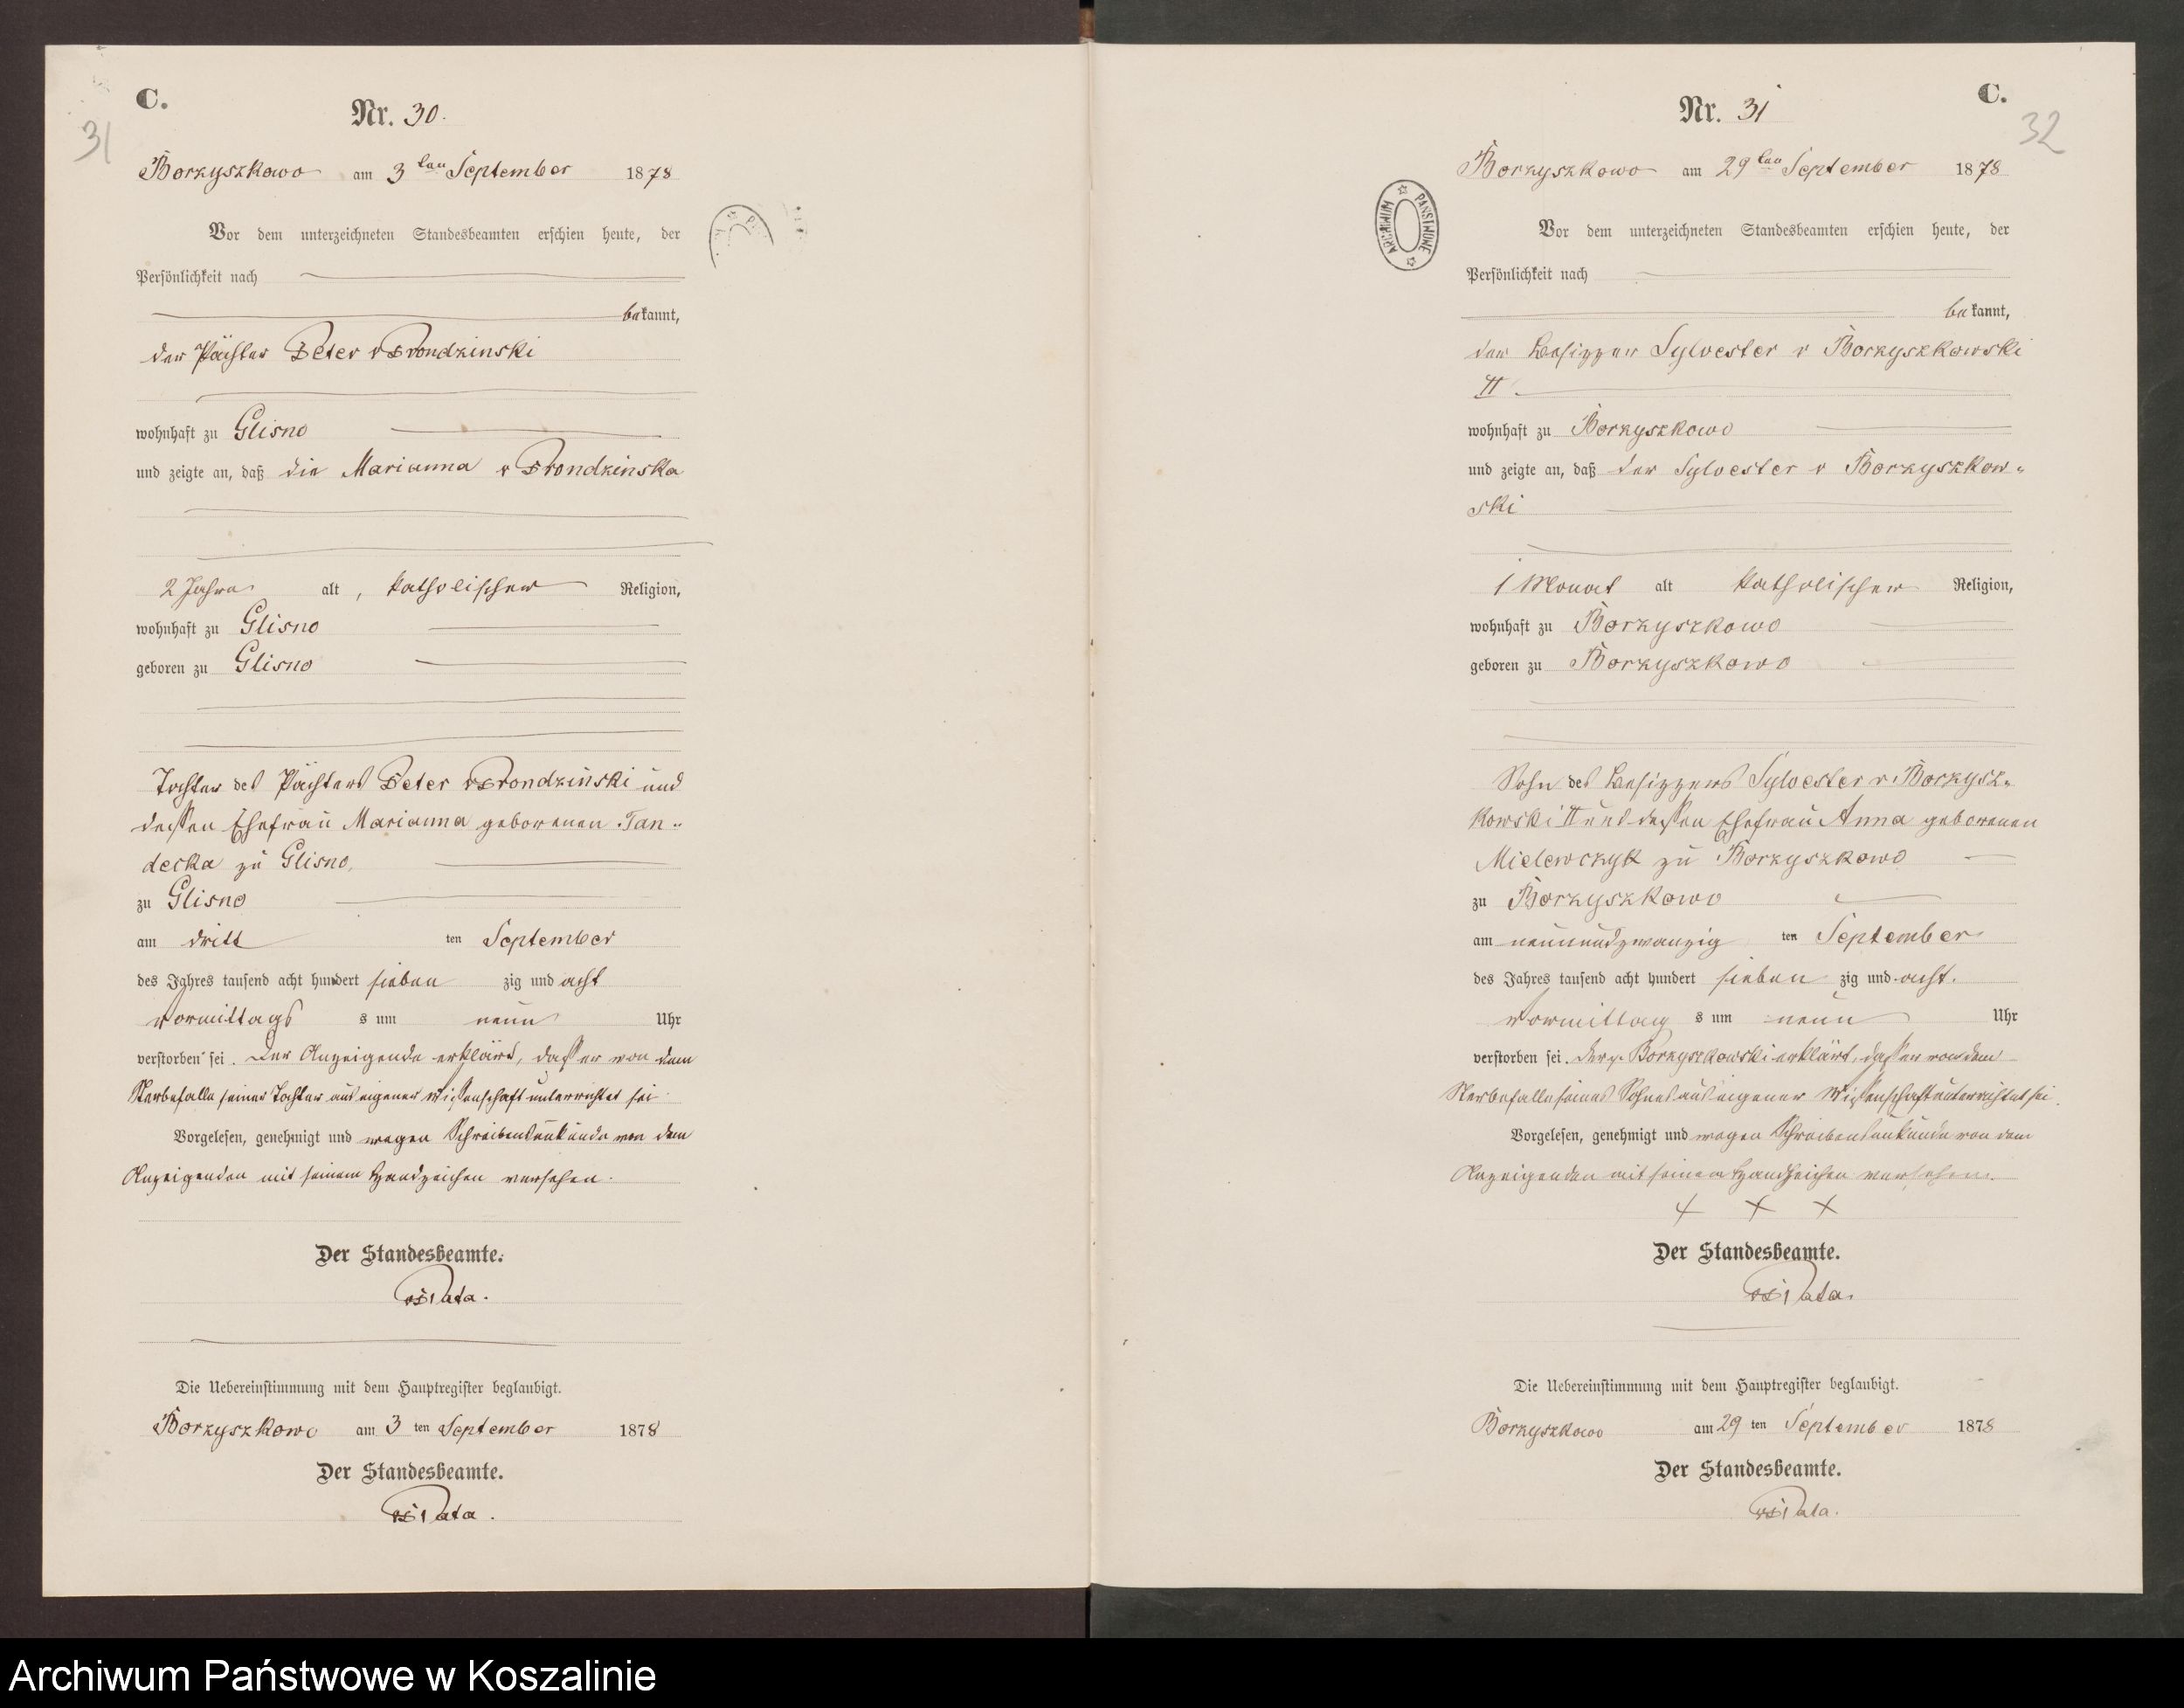 C.
31
Nr. 30.
Borzyszkowo am 3ten September 1878
Vor dem unterzeichneten Standesbeamten erschien heute, der
Persönlichkeit nach
bekannt,
der Pächter Peter v Prondzinski
wohnhaft zu Glisno
und zeigte an, daß die Marianna v Prondzinska
2 Jahre alt, katholischer Religion,
wohnhaft zu Glisno
geboren zu Glisno
Tochter des Pächters Peter v Prondzinski und
dessen Ehefrau Marianna geborenen Jan-
decka zu Glisno,
zu Glisno
am dritt ten September
des Jahres tausend acht hundert sieben zig und acht
Vormittags s um neun Uhr
verstorben sei. Der Anzeigende erklärt, daß er von dem
Sterbefalle seiner Tochter aus eigener Wissenschaft unterrichtet sei
Vorgelesen, genehmigt und wegen Schreibensunkunde von dem
Anzeigenden mit seinem Handzeichen versehen.
Der Standesbeamte.
Pata.
Die Uebereinstimmung mit dem Hauptregister beglaubigt.
Borzyszkowo am 3 ten September 1878
Der Standesbeamte.
Pata.
C.
32
Nr. 31
Borzyszkowo am 29ten September 1878
ARCHIWUM PAŃSTWOWE
Vor dem unterzeichneten Standesbeamten erschien heute, der
Persönlichkeit nach
bekannt,
der Besizzer Sylvester v Borzyszkowski
II
wohnhaft zu Borzyszkowo
und zeigte an, daß der Sylvester v Borzyszkow-
ski
1 Monat alt katholischer Religion,
wohnhaft zu Borzyszkowo
geboren zu Borzyszkowo
Sohn des Besizzers Sylvester v. Borzysz-
kowski II und dessen Ehefrau Anna geborenen
Mielewczyk zu Borzyszkowo
zu Borzyszkowo
am neunundzwanzig ten September
des Jahres tausend acht hundert sieben zig und acht.
Vormittag s um neun Uhr
verstorben sei. Der v. Borzyszkowski erklärt, daß er von dem
Sterbefalle seines Sohnes aus eigener Wissenschaft unterrichtet sei.
Vorgelesen, genehmigt und wegen Schreibensunkunde von dem
Anzeigenden mit seinem Handzeichen versehen.
+ + +
Der Standesbeamte.
Pata.
Die Uebereinstimmung mit dem Hauptregister beglaubigt.
Borzyszkowo am 29 ten September 1878
Der Standesbeamte.
Pata.
Archiwum Państwowe w Koszalinie